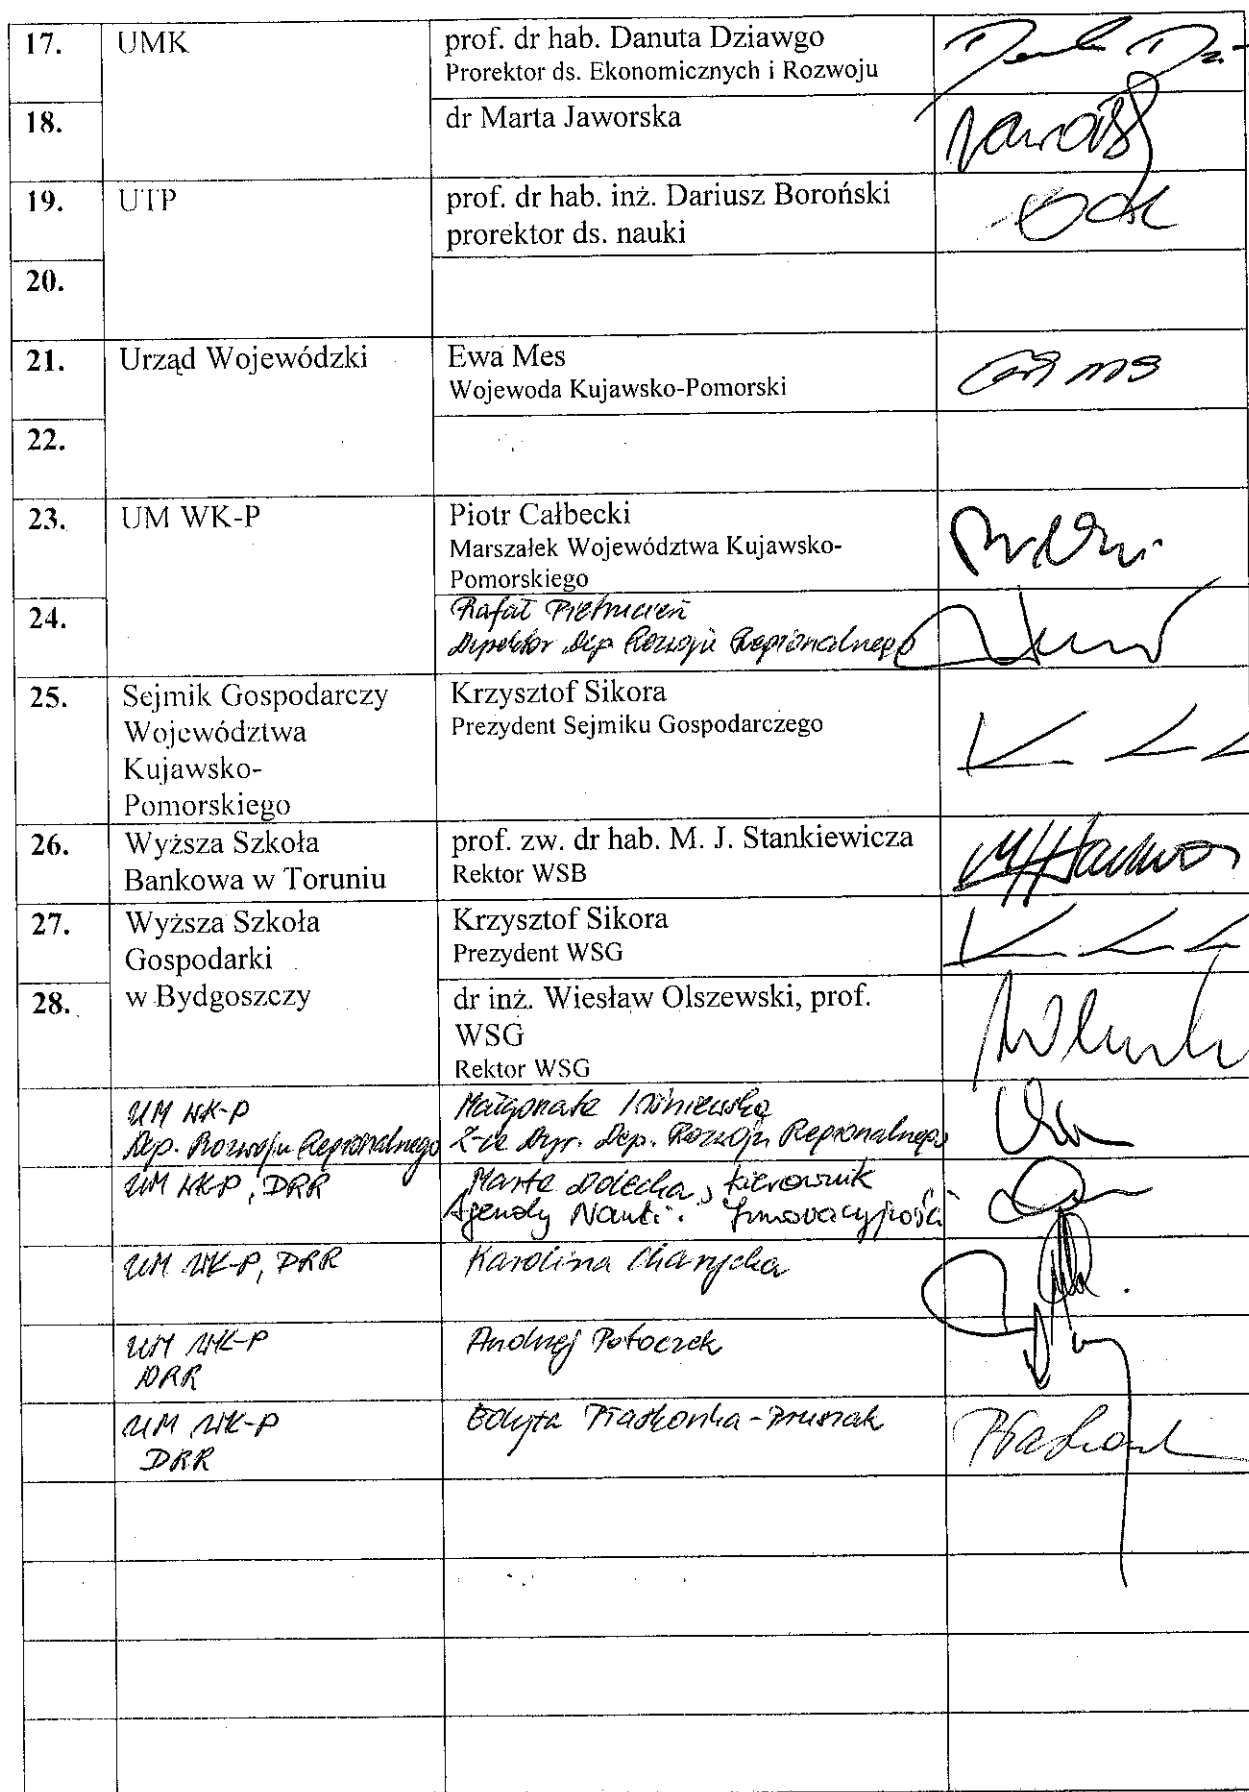 17. UMK prof. dr hab. Danuta Dziawgo
Prorektor ds. Ekonomicznych i Rozwoju
18. dr Marta Jaworska
19. UTP prof. dr hab. inż. Dariusz Boroński
prorektor ds. nauki
20.
21. Urząd Wojewódzki Ewa Mes
Wojewoda Kujawsko-Pomorski
22.
23. UM WK-P Piotr Całbecki
Marszałek Województwa Kujawsko-
Pomorskiego
24. Rafał Pietrucień
Dyrektor Dep. Rozwoju Regionalnego
25. Sejmik Gospodarczy
Województwa
Kujawsko-
Pomorskiego
Krzysztof Sikora
Prezydent Sejmiku Gospodarczego
26. Wyższa Szkoła
Bankowa w Toruniu
prof. zw. dr hab. M. J. Stankiewicza
Rektor WSB
27. Wyższa Szkoła
Gospodarki
w Bydgoszczy
Krzysztof Sikora
Prezydent WSG
28. dr inż. Wiesław Olszewski, prof.
WSG
Rektor WSG
UM WK-P
Dep. Rozwoju Regionalnego
Małgorzata
Z-ca Dyr. Dep. Rozwoju Regionalnego
UM WK-P, DRR
Marta kierownik
Agendy Nauki i Innowacyjności
UM WK-P, DRR Karolina
UM WK-P
DRR
Andrzej Potoczek
UM WK-P
DRR
Edyta